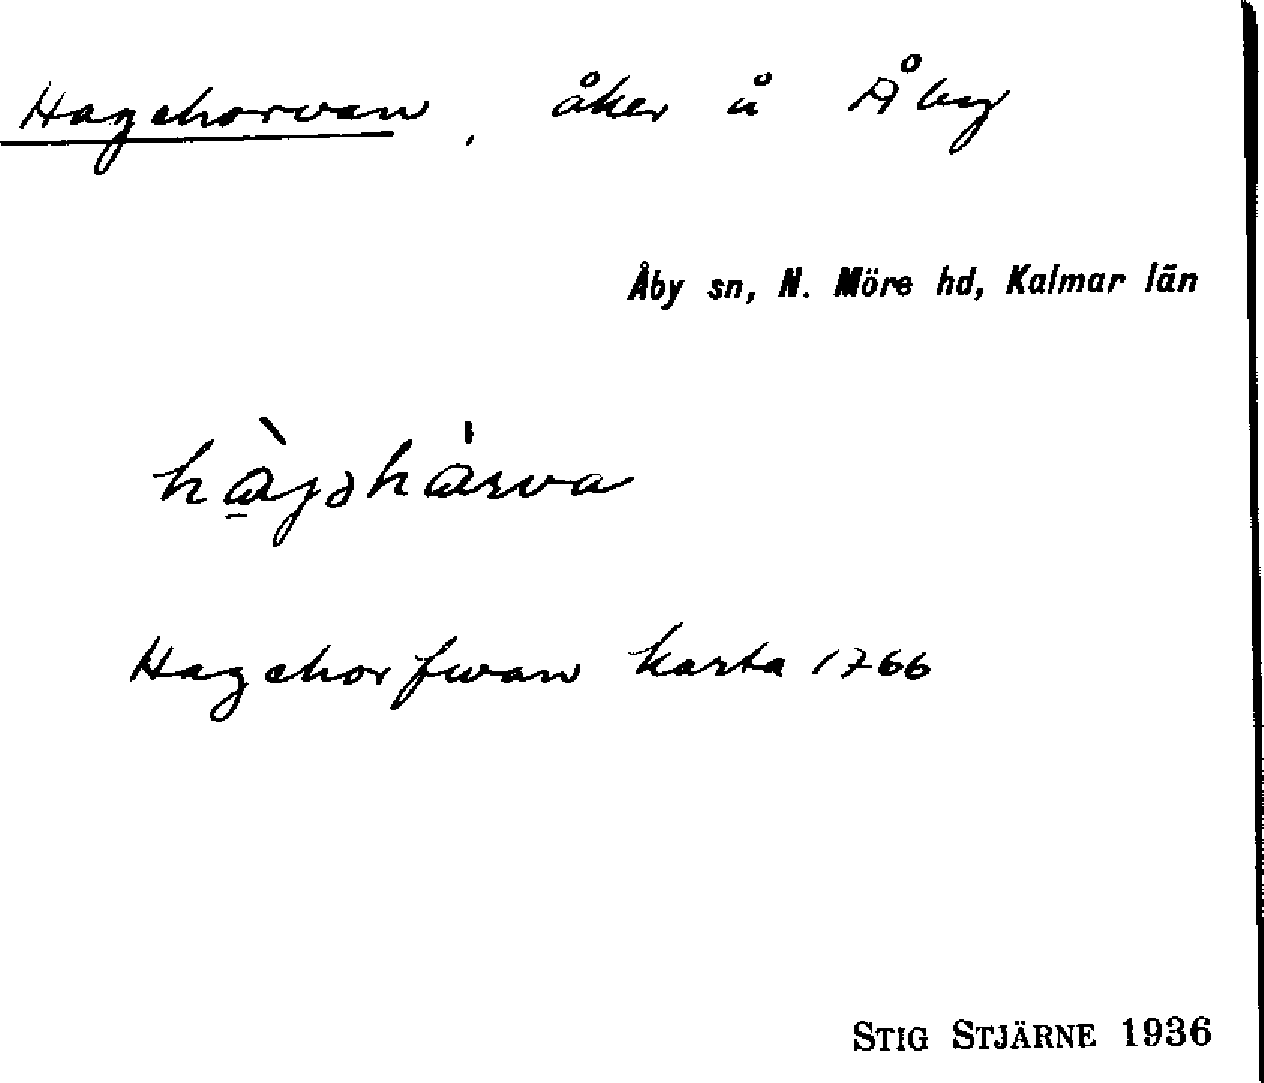 Hagehorvan, åker å Åby
Åby sn, N. Möre hd, Kalmar län
hàgəhárva
Hagehorfwan karta 1766
STIG STJÄRNE 1936